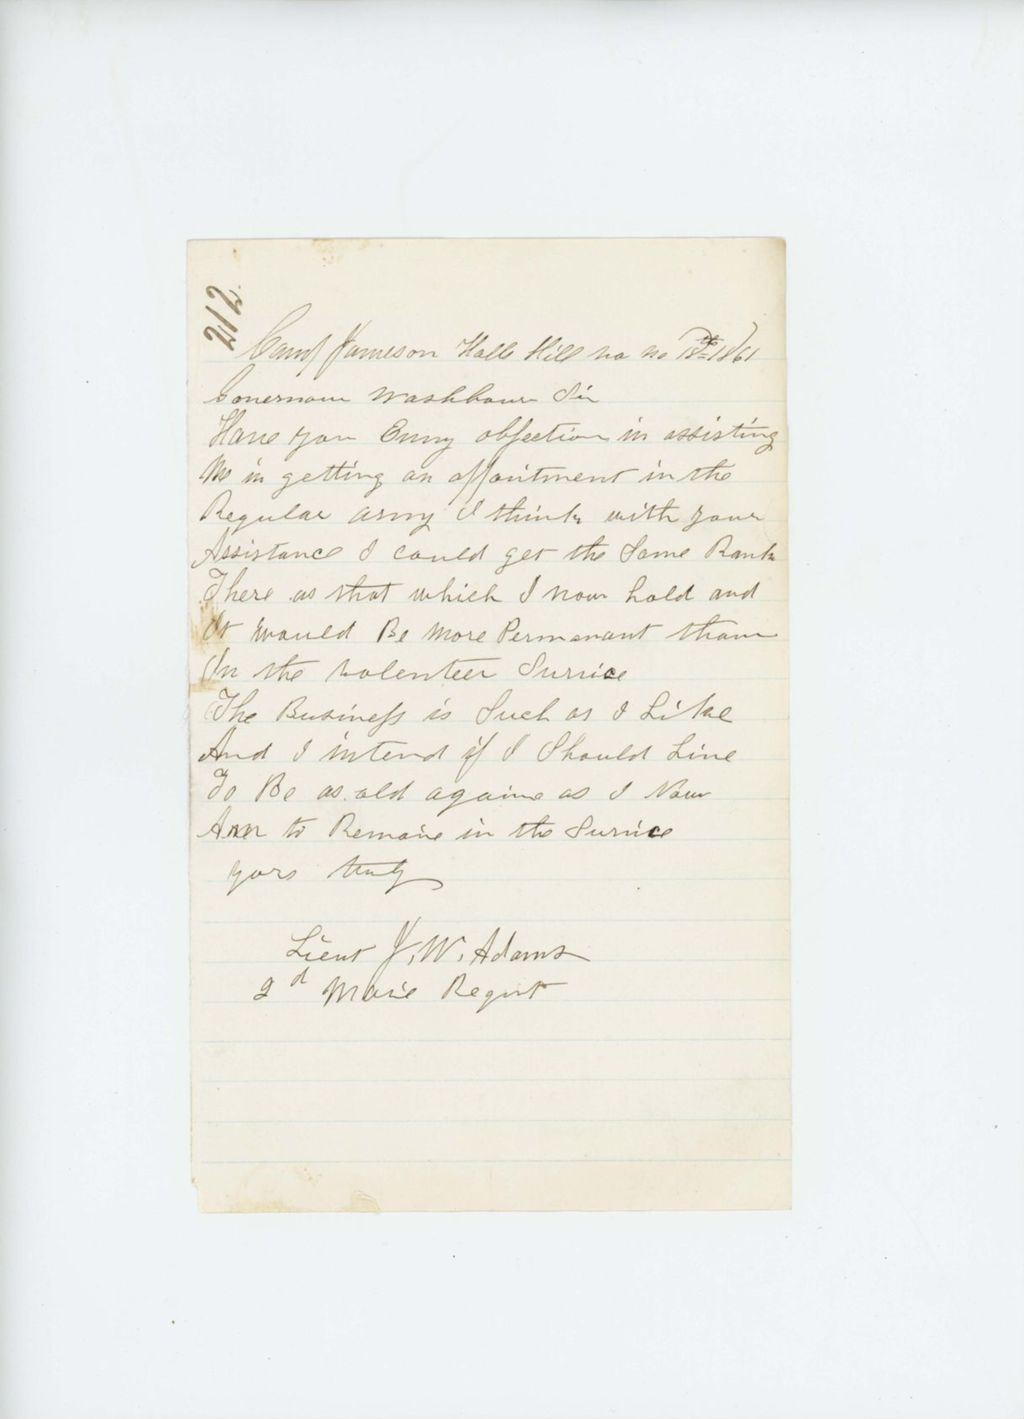 212
Camp Jameson Halls Hill va no 18th 1861
Governour Washbourn Sir
Have you Enny objection in assisting
Me in getting an appointment in the
Regular army I think with your
Assistance I could get the Same Rank
There as that which I now hold and
It would Be More Permanant than
In the volenteer Survice
The Business is Such as I Like
And I intend if I Should Live
To Be as old againe as I Now
Am to Remaie in the Survice
yors truly
Lieut J. W. Adams
2d Maie Regmt